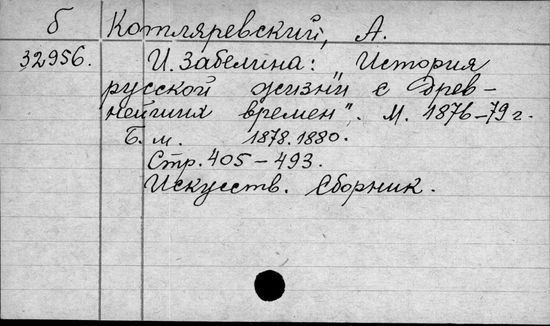 б Котляревский, А.
32956. И. Забелина: История
русской жизни с древ-
нейших времен". М. 1876-79 г.
Б. м. 1878.1880.
Стр. 405-493.
Искусств. Сборник.